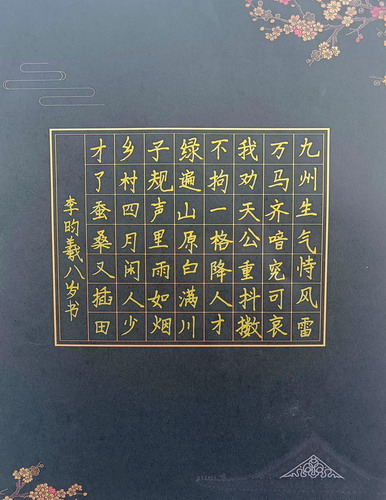 九州生气恃风雷
万马齐喑究可哀
我劝天公重抖擞
不拘一格降人才
绿遍山原白满川
子规声里雨如烟
乡村四月闲人少
才了蚕桑又插田
李昀羲八岁书